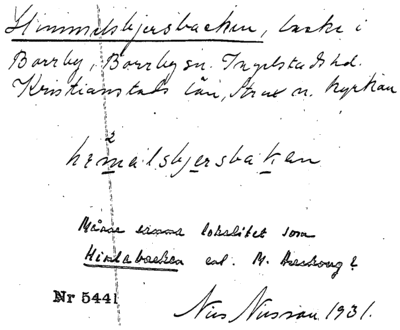 Himmelsbjersbacken, backe i
Borrby, Borrby sn. Ingelstads hd.
Kristianstads län, strax n. kyrkan
2
hemalsbjersbakan
Månne samma lokalitet som
Hindabacken enl. M.
Nr 5441
Nils Nilsson 1931.